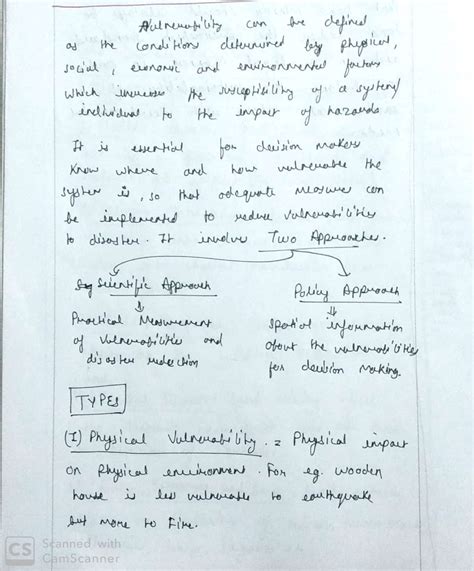 Vulnerability can be defined
as the conditions determined by physical,
social, economic and environmental factors
which increases the susceptibility of a system/
individual to the impact of hazards
It is essential for decision makers
know where and how vulnerable the
system is, so that adequate measure can
be implemented to reduce vulnerabilities
to disaster. It involves Two Approaches.
Scientific Approach
Policy Approach
Practical Measurement
of vulnerabilities and
disaster reduction
Spatial information
about the vulnerabilities
for decision making.
TYPES
(I) Physical Vulnerability. = Physical impact
on Physical environment. For eg. wooden
house is less vulnerable to earthquake
but more to Fire.
CS Scanned with
CamScanner